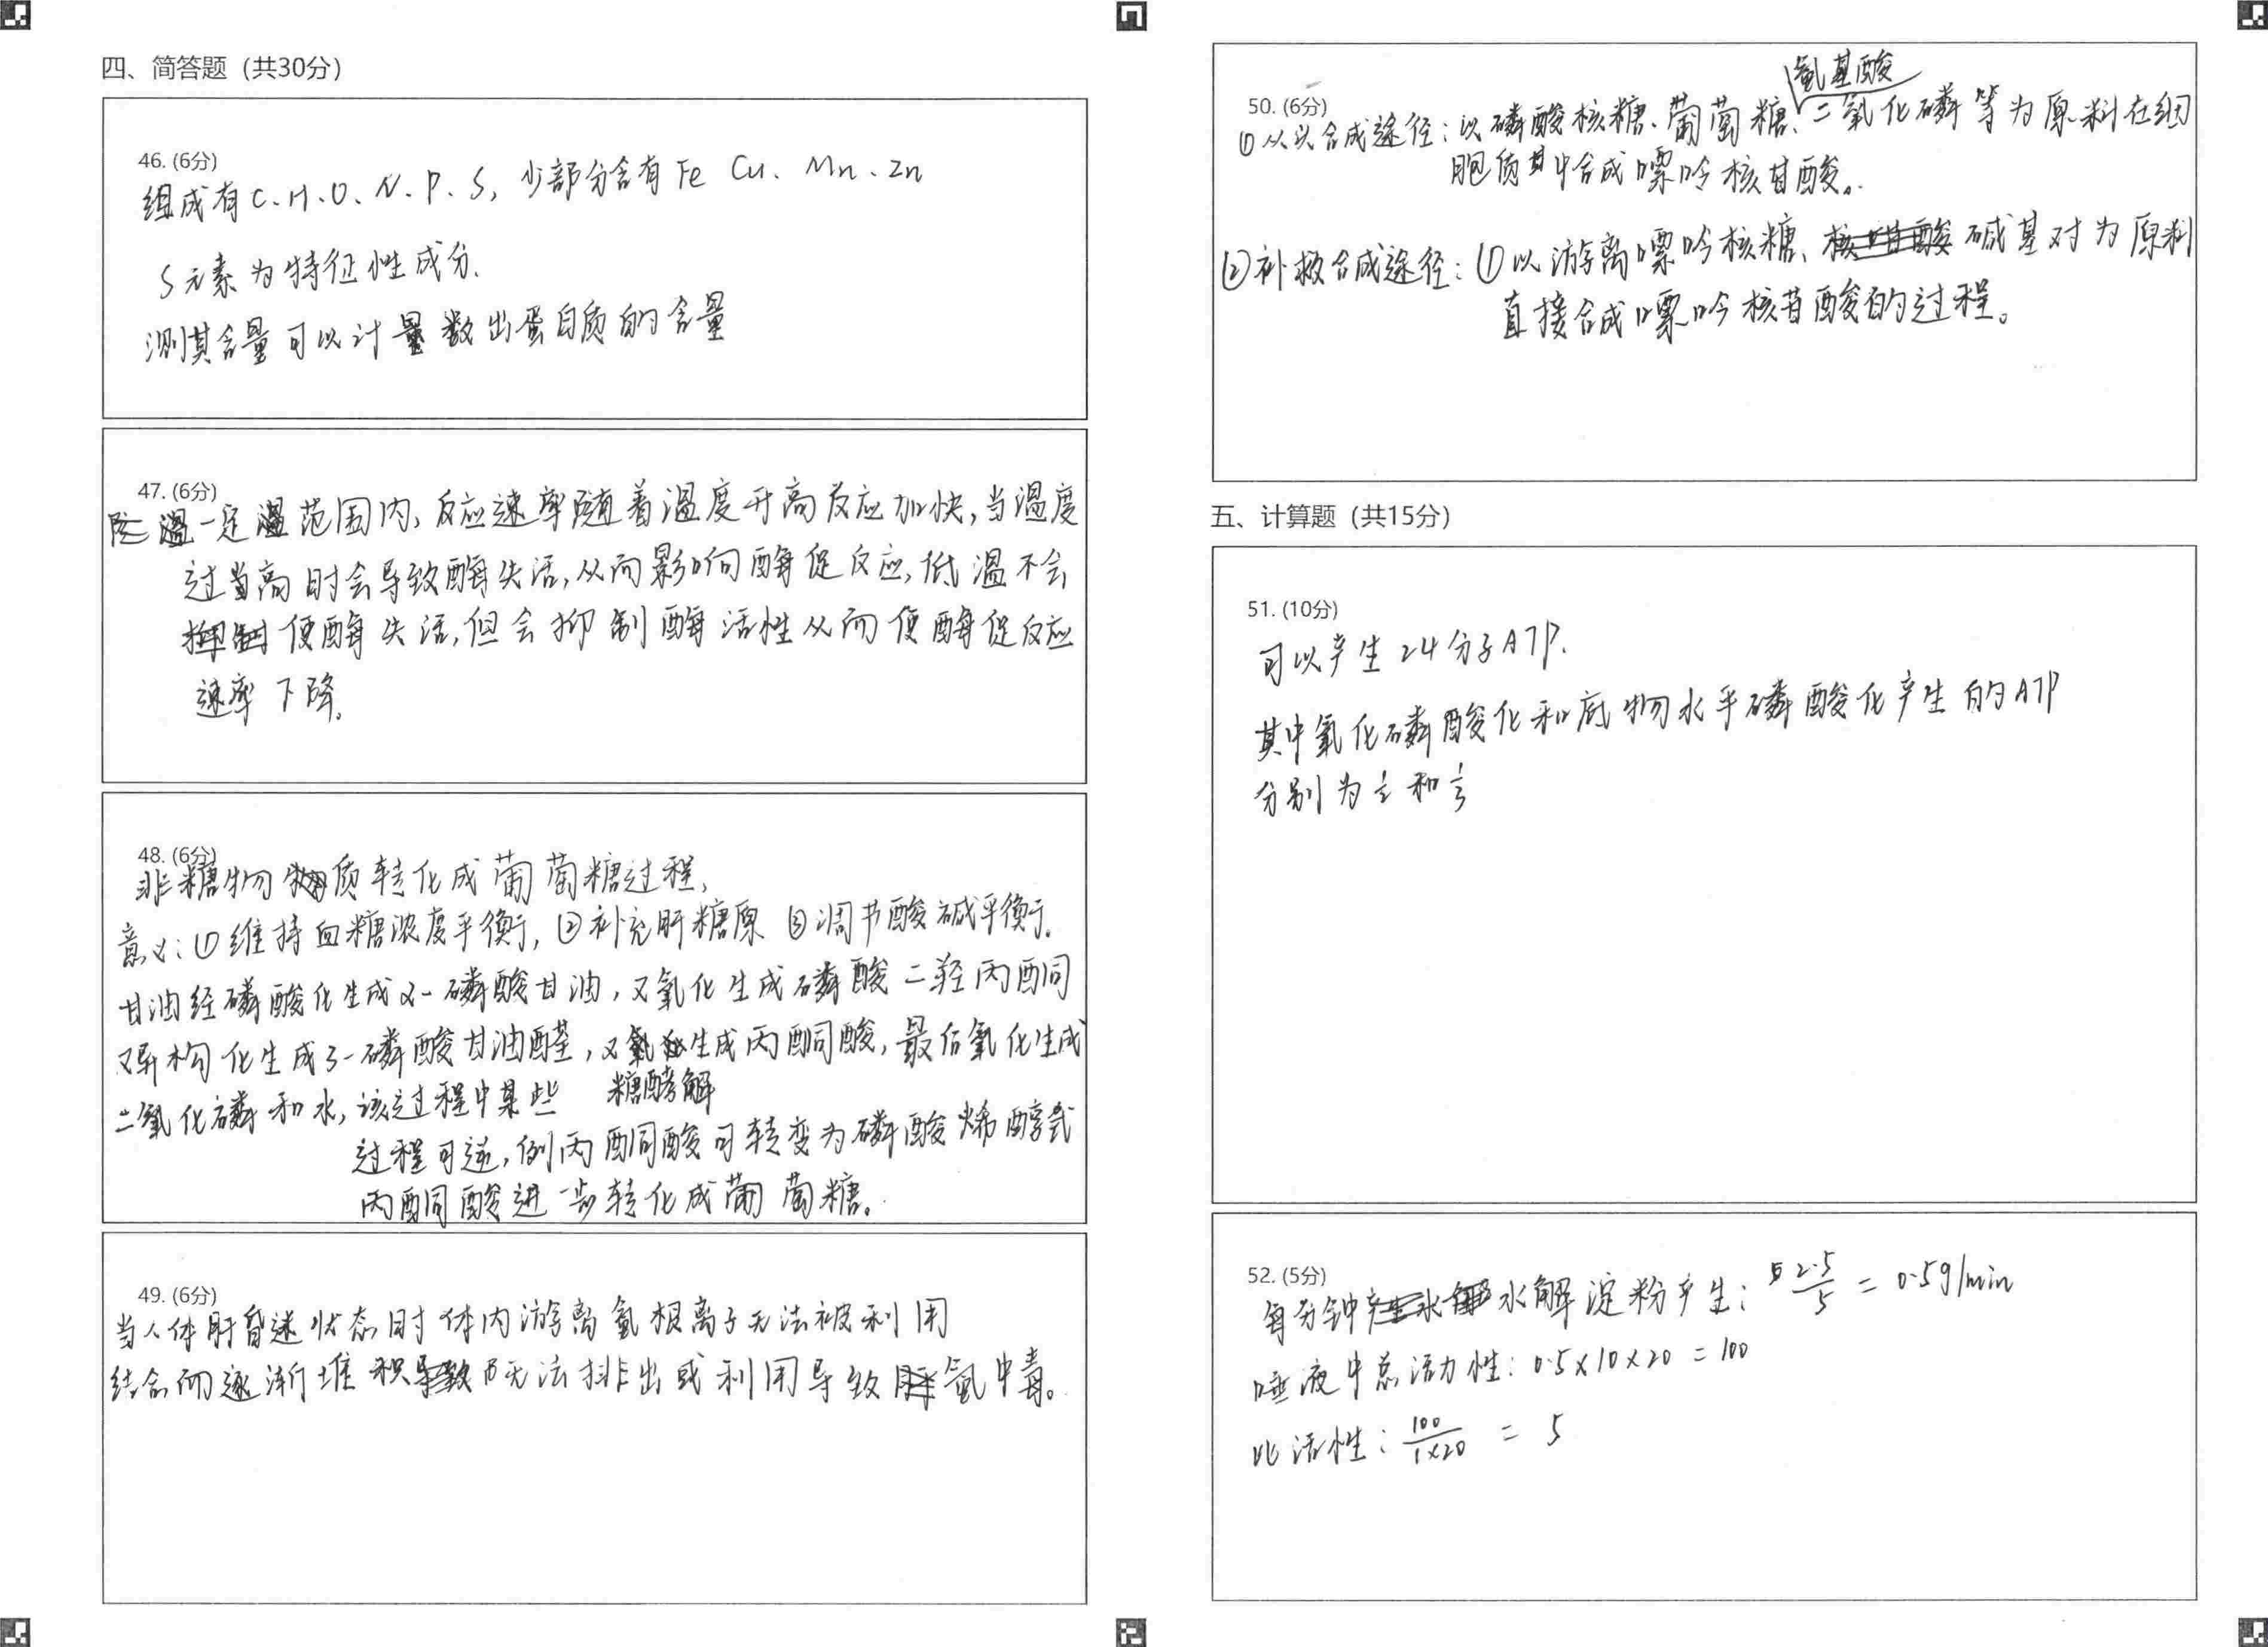 四、简答题（共30分）
46. (6分)
组成有C、H、O、N、P、S, 少部分含有Fe Cu、Mn、Zn
S元素为特征性成分.
测其含量可以计数出蛋白质的含量
47. (6分)
一定范围内, 反应速率随着温度升高反应加快, 当温度
过高时会导致酶失活, 从而影响酶促反应, 低温不会
使酶失活, 但会抑制酶活性从而使酶促反应
速率下降。
48. (6分)
非糖物质转化成葡萄糖过程,
意义: ①维持血糖浓度平衡, ②补充肝糖原 ③调节酸碱平衡.
甘油经磷酸化生成α-磷酸甘油, 又氧化生成磷酸二羟丙酮
又异构化生成3-磷酸甘油醛, 又生成丙酮酸, 最后氧化生成
二氧化磷和水, 该过程中某些 糖酵解
过程可逆, 例丙酮酸可转变为磷酸烯醇式
丙酮酸进一步转化成葡萄糖.
49. (6分)
当人体肝昏迷状态时体内游离氨根离子无法被利用
结合而逐渐堆积无法排出或利用导致氨中毒。
50. (6分)
①从头合成途径: 以磷酸核糖、葡萄糖、氨基酸、二氧化磷等为原料在细
胞质中合成嘌呤核苷酸。
②补救合成途径: ①以游离嘌呤核糖、碱基对为原料
直接合成嘌呤核苷酸的过程。
五、计算题（共15分）
51. (10分)
可以产生24分子ATP.
其中氧化磷酸化和底物水平磷酸化产生的ATP
分别为½和⅓
52. (5分)
每分钟水解淀粉产生: 2.5/5 = 0.5g/min
唾液中总活力性: 0.5×10×20 = 100
比活性: 100/1×20 = 5